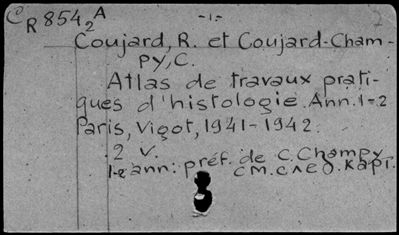 CR 854₂A -1-
Coujard, R. et Coujard-Cham-
py, C.
Atlas de travaux prati-
ques d'histologie. Ann. 1-2
Paris, Vigot, 1941-1942.
2 v.
1-e ann: préf. de C. Champy